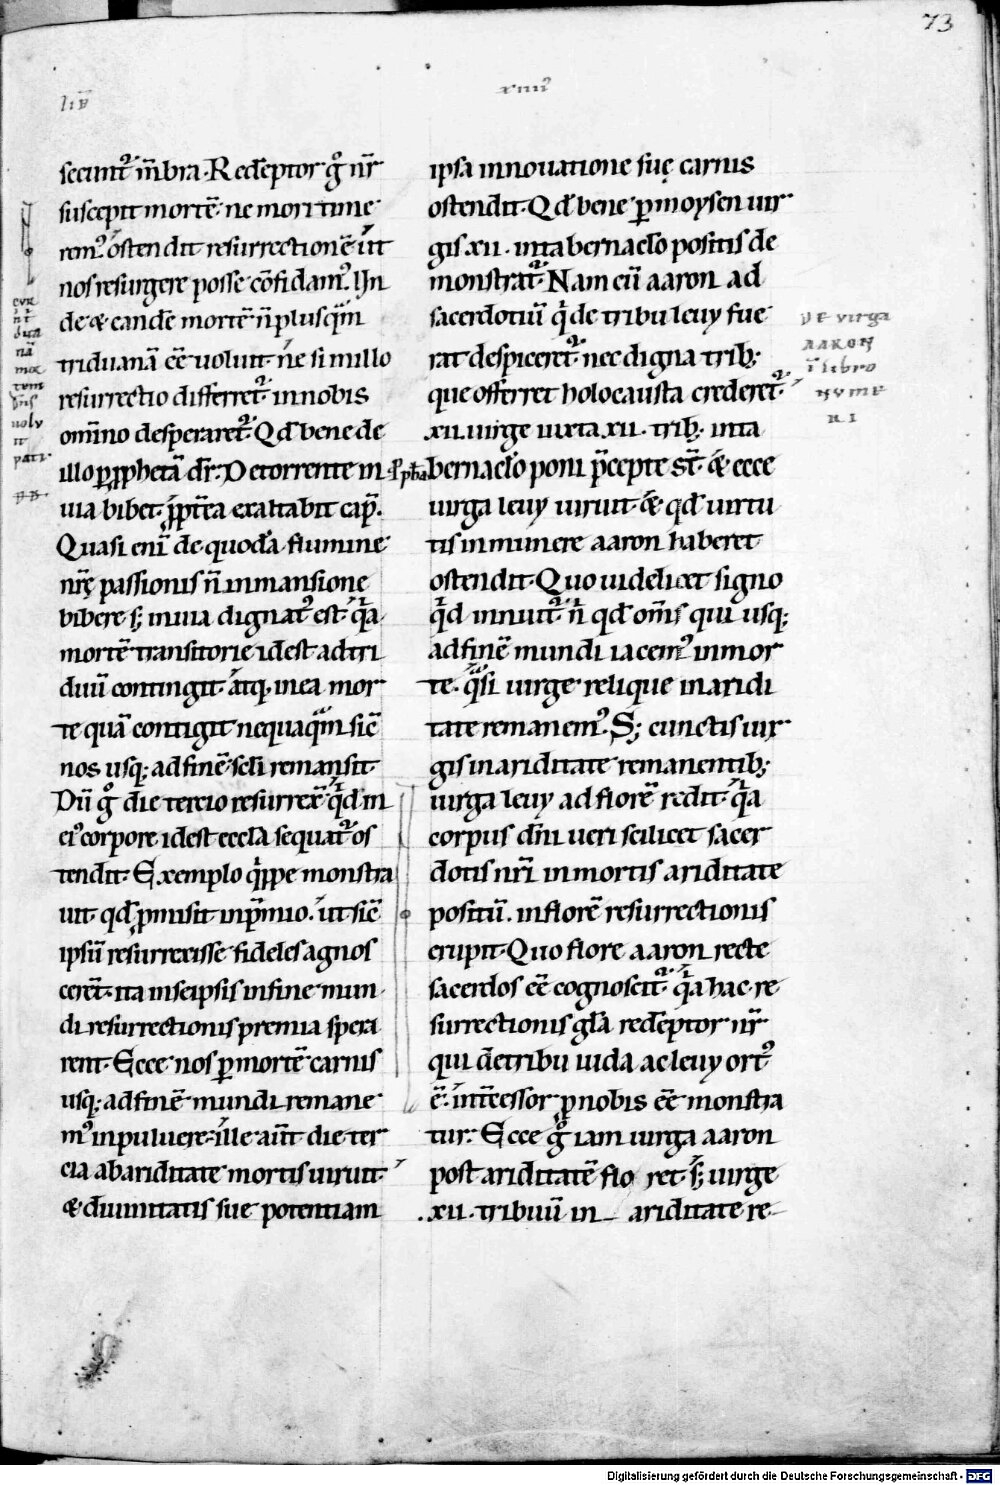 73
xiiii⁹
liiii
secunt᷑ m̅bra. Redēptor gͦ nr̅
suscepit mortē. ne mori time
rem⁹. ostendit resurrectionē. ut
nos resurgere posse cōfidam⁹. Un
de & eandē mortē n̅ plusqͣm
triduanā eē uoluit. ne si in illo
resurrectio differret᷑. in nobis
omīno desperaret᷑. Qd̅ bene de
illo ꝑ ꝓphetā dr̅. De torrente in
uia bibet. ꝓpt̅ea exaltabit cap̅.
Quasi eni̅ de quodā flumine
nr̅ę passionis n̅ in mansione
bibere s; in uia dignat᷑ est. qͥa
mortē transitorie idest ad tri
duū contingit. atq; in ea mor
te quā contigit nequaqͣm sic̅
nos usq; ad finē sc̅li remansit.
Dū gͦ die tercio resurrex̅ qͥd in
ei⁹ corpore idest eccl̅a sequat᷑ os
tendit. Exemplo qͥppe monstra
uit. qd̅ ꝓmisit in p̅mio. ut sic̅
ipsū resurrexisse fideles agnos
cerēt. ita in se ipsis in fine mun
di resurrectionis premia spera
rent. Ecce nos ꝑ mortē carnis
usq; ad finē mundi remane
m⁹ in puluere. ille aūt die ter
cia ab ariditate mortis uiruit.
& diuinitatis sue potentiam
ipsa innouatione suę carnis
ostendit. Qd̅ bene ꝑ moysen uir
gis .xii. in tabernac̅lo positis de
monstrat᷑. Nam cū aaron ad
sacerdotiū qͥ de tribu leuy fue
rat despiceret᷑. nec digna trib;
que offerret holocausta crederet᷑.
.xii. uirge iuxta .xii. trib; in ta
bernac̅lo poni p̅cepte st̅. & ecce
uirga leuy uiruit. & qd̅ uirtu
tis in munere aaron haberet
ostendit. Quo uidelicet signo
qͥd innuit᷑. nͥ qd̅ om̅s qui usq;
ad finē mundi iacem⁹ in mor
te. qͣsi uirge relique in aridi
tate remanem⁹. S; cunctis uir
gis in ariditate remanentib;
uirga leuy ad florē rediit. qͥa
corpus dn̅i ueri scilicet sacer
dotis nr̅i in mortis ariditate
positū. in florē resurrectionis
erupit. Quo flore aaron recte
sacerdos eē cognoscit᷑. qͥa hac re
surrectionis gl̅a redēptor nr̅
qui de tribu iuda ac leuy ort⁹
ē. int̅cessor ꝓ nobis eē monstra
tur. Ecce gͦ iam uirga aaron
post ariditatē flo ret. s; uirge
.xii. tribuū in ariditate re-
DE virga
AARON
ī libro
NVME
RI